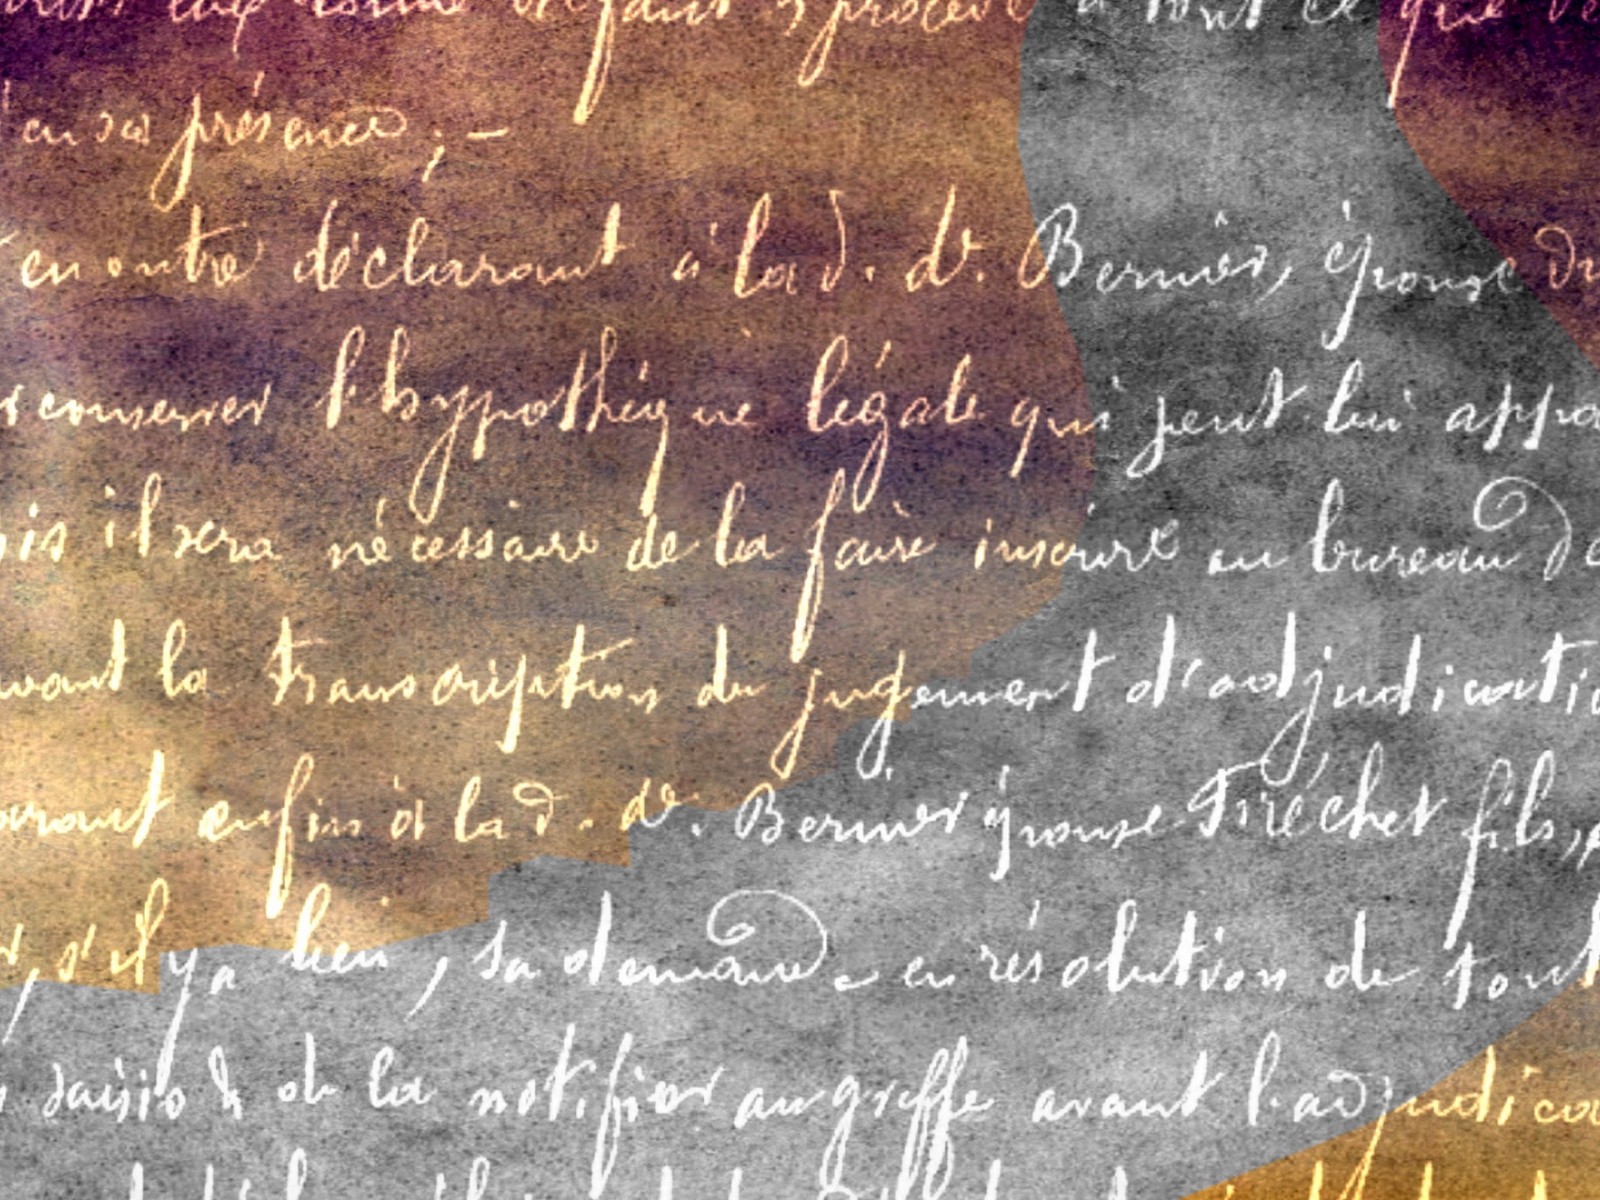 défaut & procédé à tout ce que
en sa présence ; —
en outre déclarant à la d. de. Bernier, épouse du
conserver l'hypothèque légale qui peut lui appa
is il sera nécessaire de la faire inscrire au bureau de
vant la transcription du jugement d'adjudicatio
arant enfin à la d. de. Bernier épouse Fréchet fils,
, s'il y a lieu, sa demande en résolution de tout
saisis & de la notifier au greffe avant l'adjudica